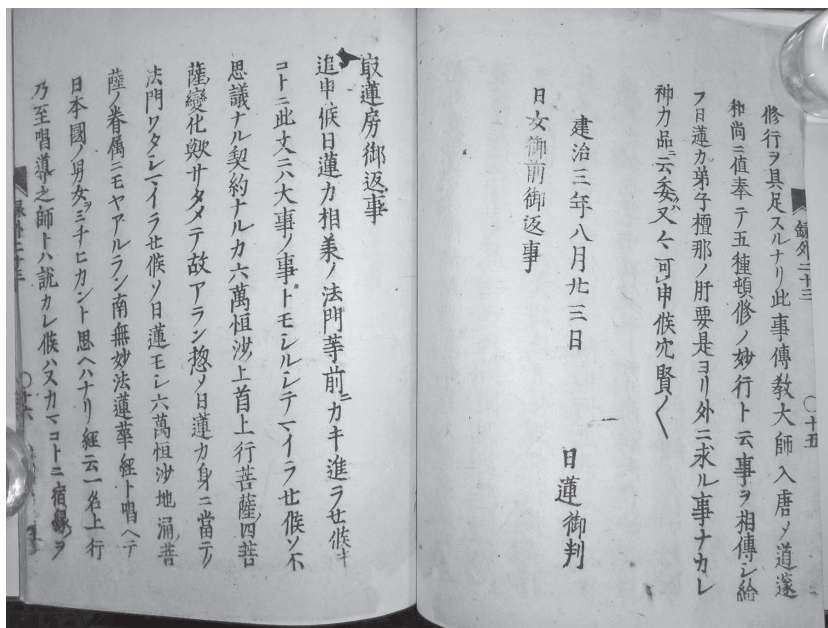 録外二十三 〇十五
修行ヲ具足スルナリ此事傳教大師入唐〆道邃
和尚ニ値奉テ五種頓修ノ妙行ト云事ヲ相傳シ給
フ日蓮カ弟子檀那ノ肝要是ヨリ外ニ求ル事ナカレ
神力品ニ云委ハ又々可申候穴賢〱
建治三年八月廿三日
日蓮御判
日女御前御返事
㝡蓮房御返事
追申候日蓮カ相兼ノ法門等前ニカキ進ラセ候キ
コトニ此文ニハ大事ノ事トモシルシテマイラセ候ソ不
思議ナル契約ナルカ六萬恒沙上首上行菩薩四菩
薩變化歟サタメテ故アラン惣〆日蓮カ身ニ當テノ
法門ワタシマイラセ候ソ日蓮モシ六萬恒沙地涌菩
薩ノ眷属ニモヤアルラン南無妙法蓮華經ト唱ヘテ
日本國ノ男女ヲミチヒカント思ヘハナリ經云一名上行
乃至唱導之師トハ説カレ候ハヌカマコトニ宿縁ヲ